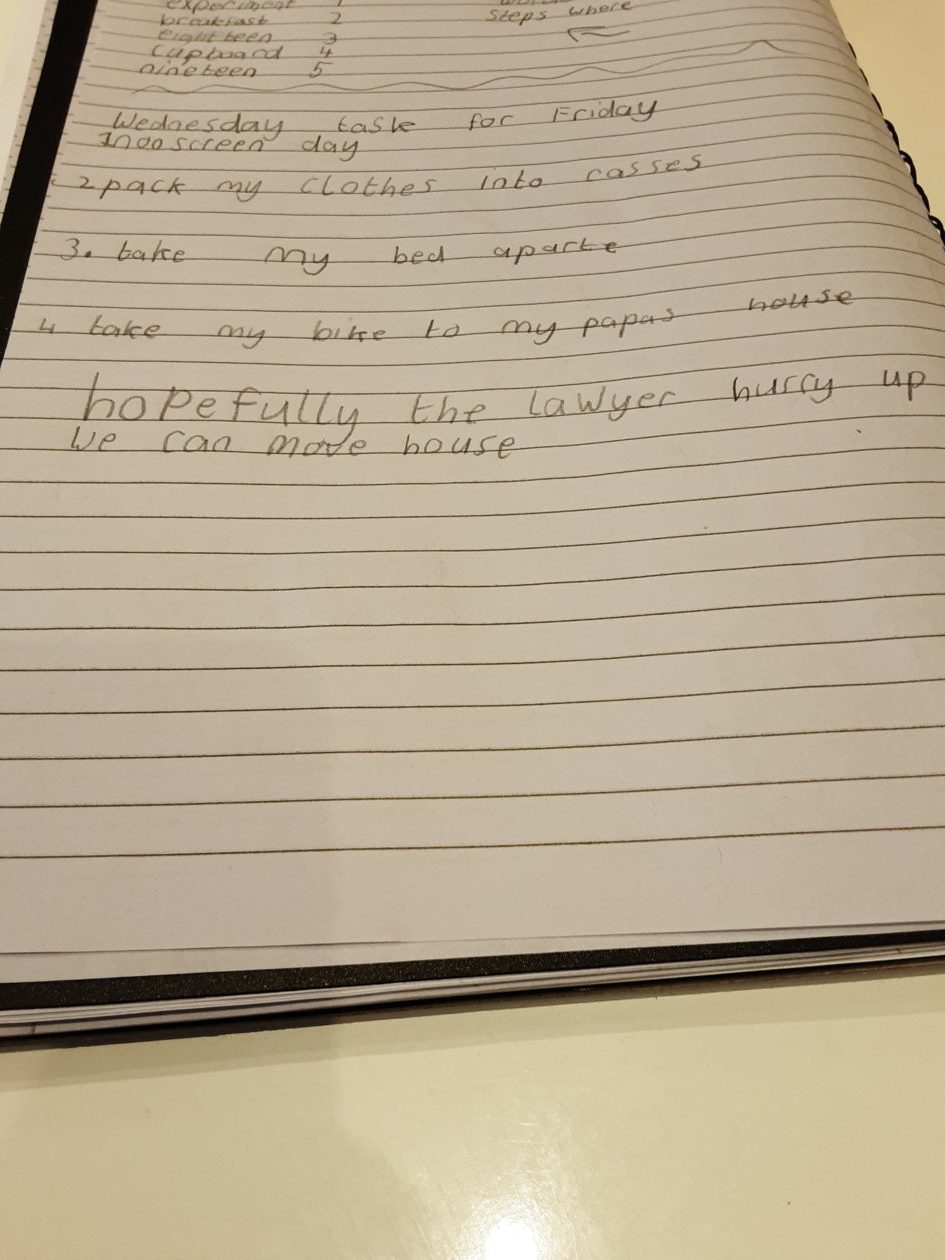 experiment 1
breakfast 2 steps where
eighteen 3
cupboard 4
nineteen 5
Wednesday task for Friday
1 noscreen day
2 pack my clothes into casses
3. take my bed aparte
4 take my bike to my papas house
hopefully the lawyer hurry up
we can move house